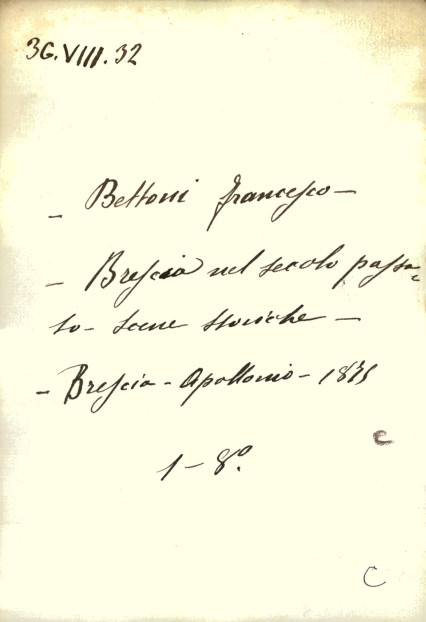 3G.VIII.32
- Bettoni Francesco -
- Brescia nel secolo passa-
to - scene storiche -
- Brescia - Apollonio - 1875
1 - 8º.
C
C